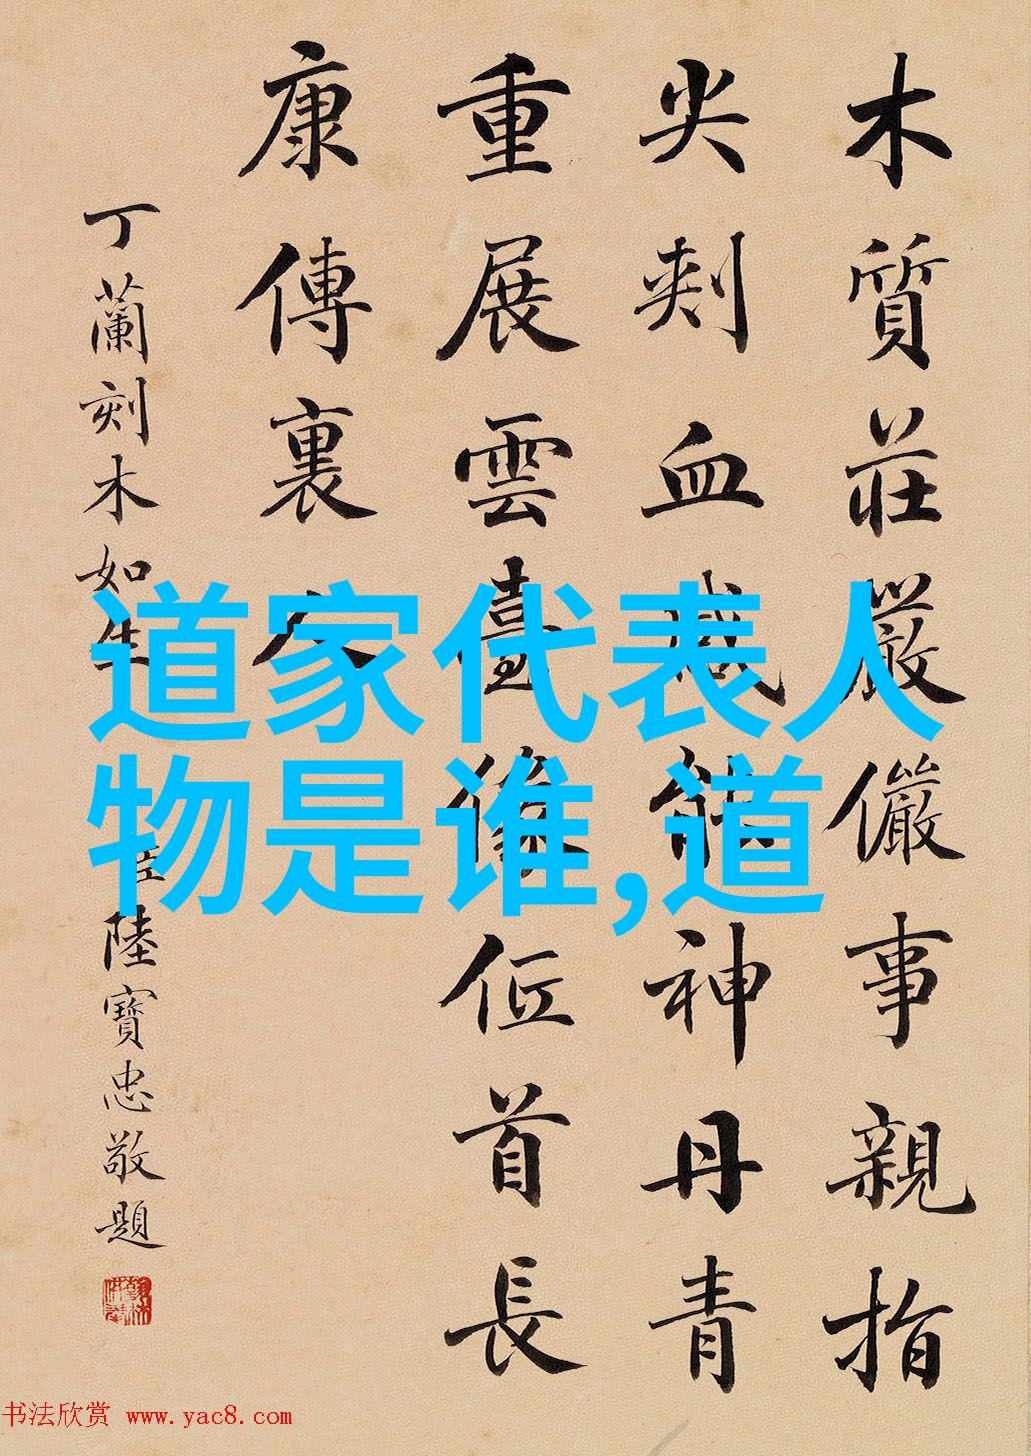 木質莊嚴儼事親指
尖刾血感能神丹青
重展雲臺像低首長
康傳裏人
丁蘭刻木如生 臣陸寶忠敬題
道家代表人
物是谁,道
书法欣赏 www.yac8.com